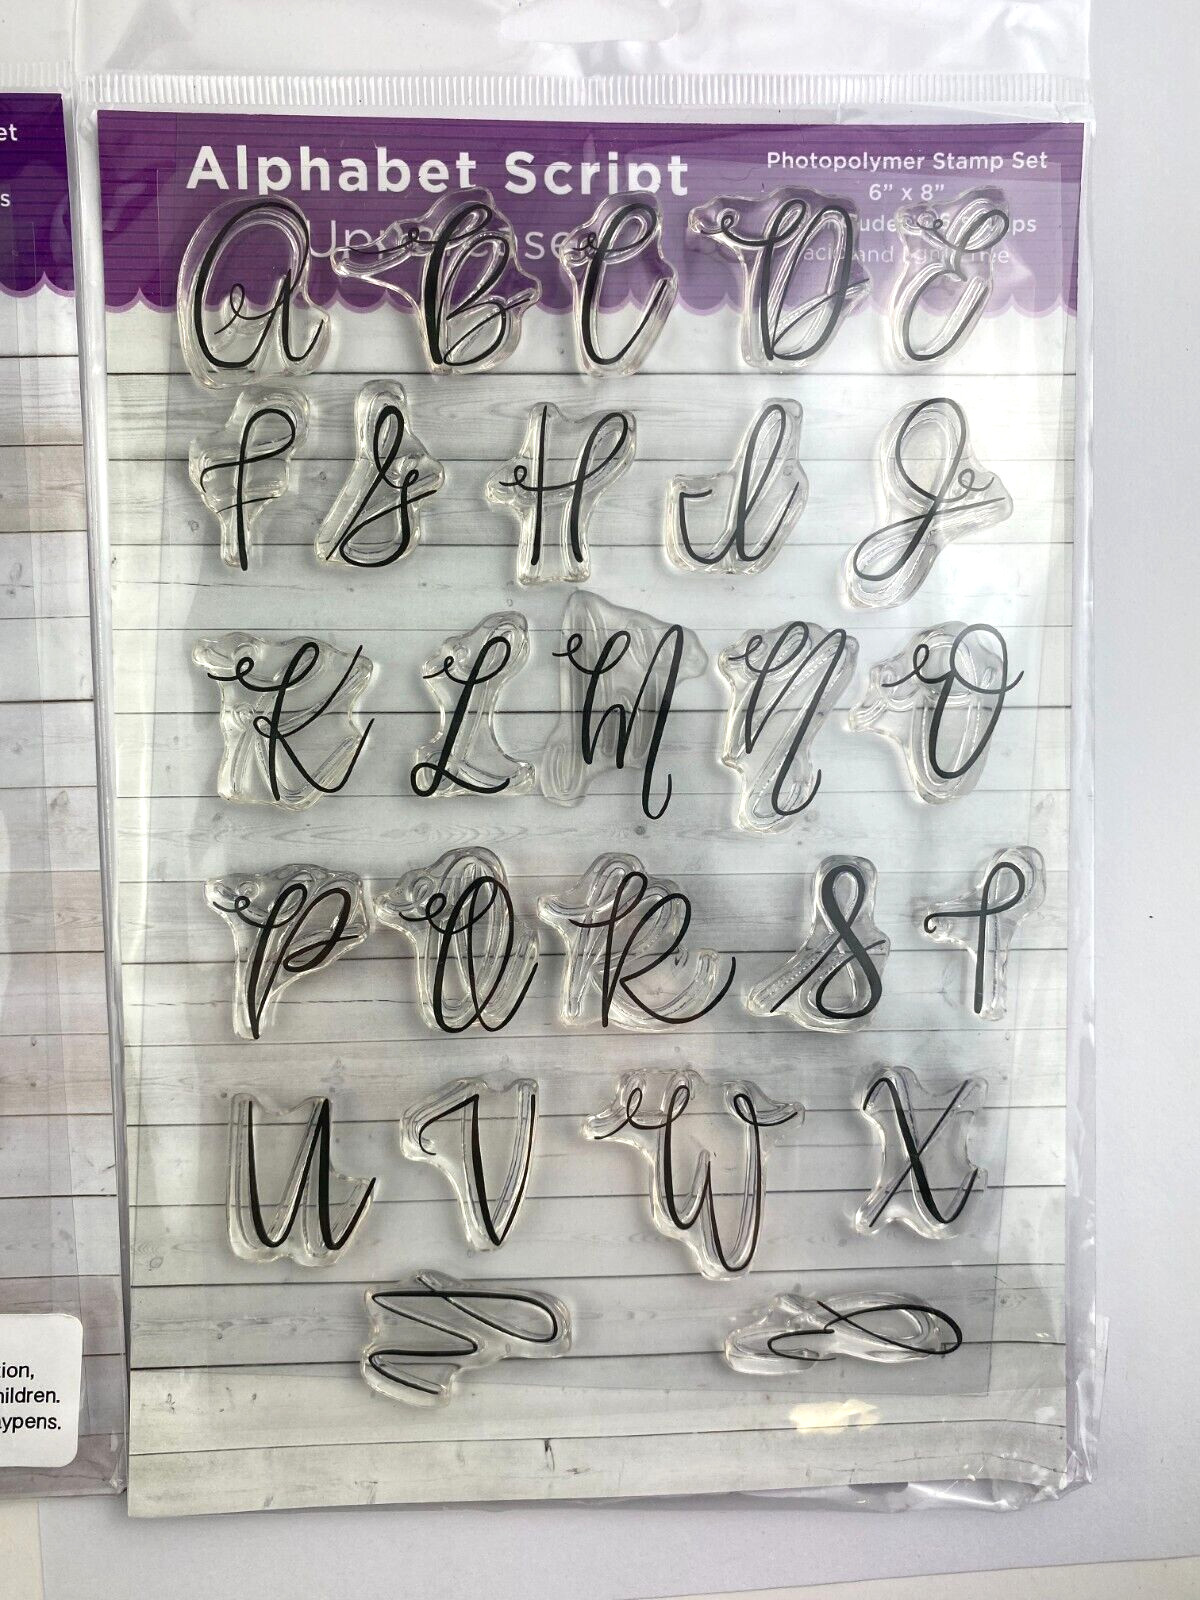 et
s
Alphabet Script
Uppercase
Photopolymer Stamp Set
6” x 8”
includes 26 stamps
acid and lignin free
A B C D E
F G H I J
K L M N O
P Q R S T
U V W X
Y Z
tion,
hildren.
aypens.